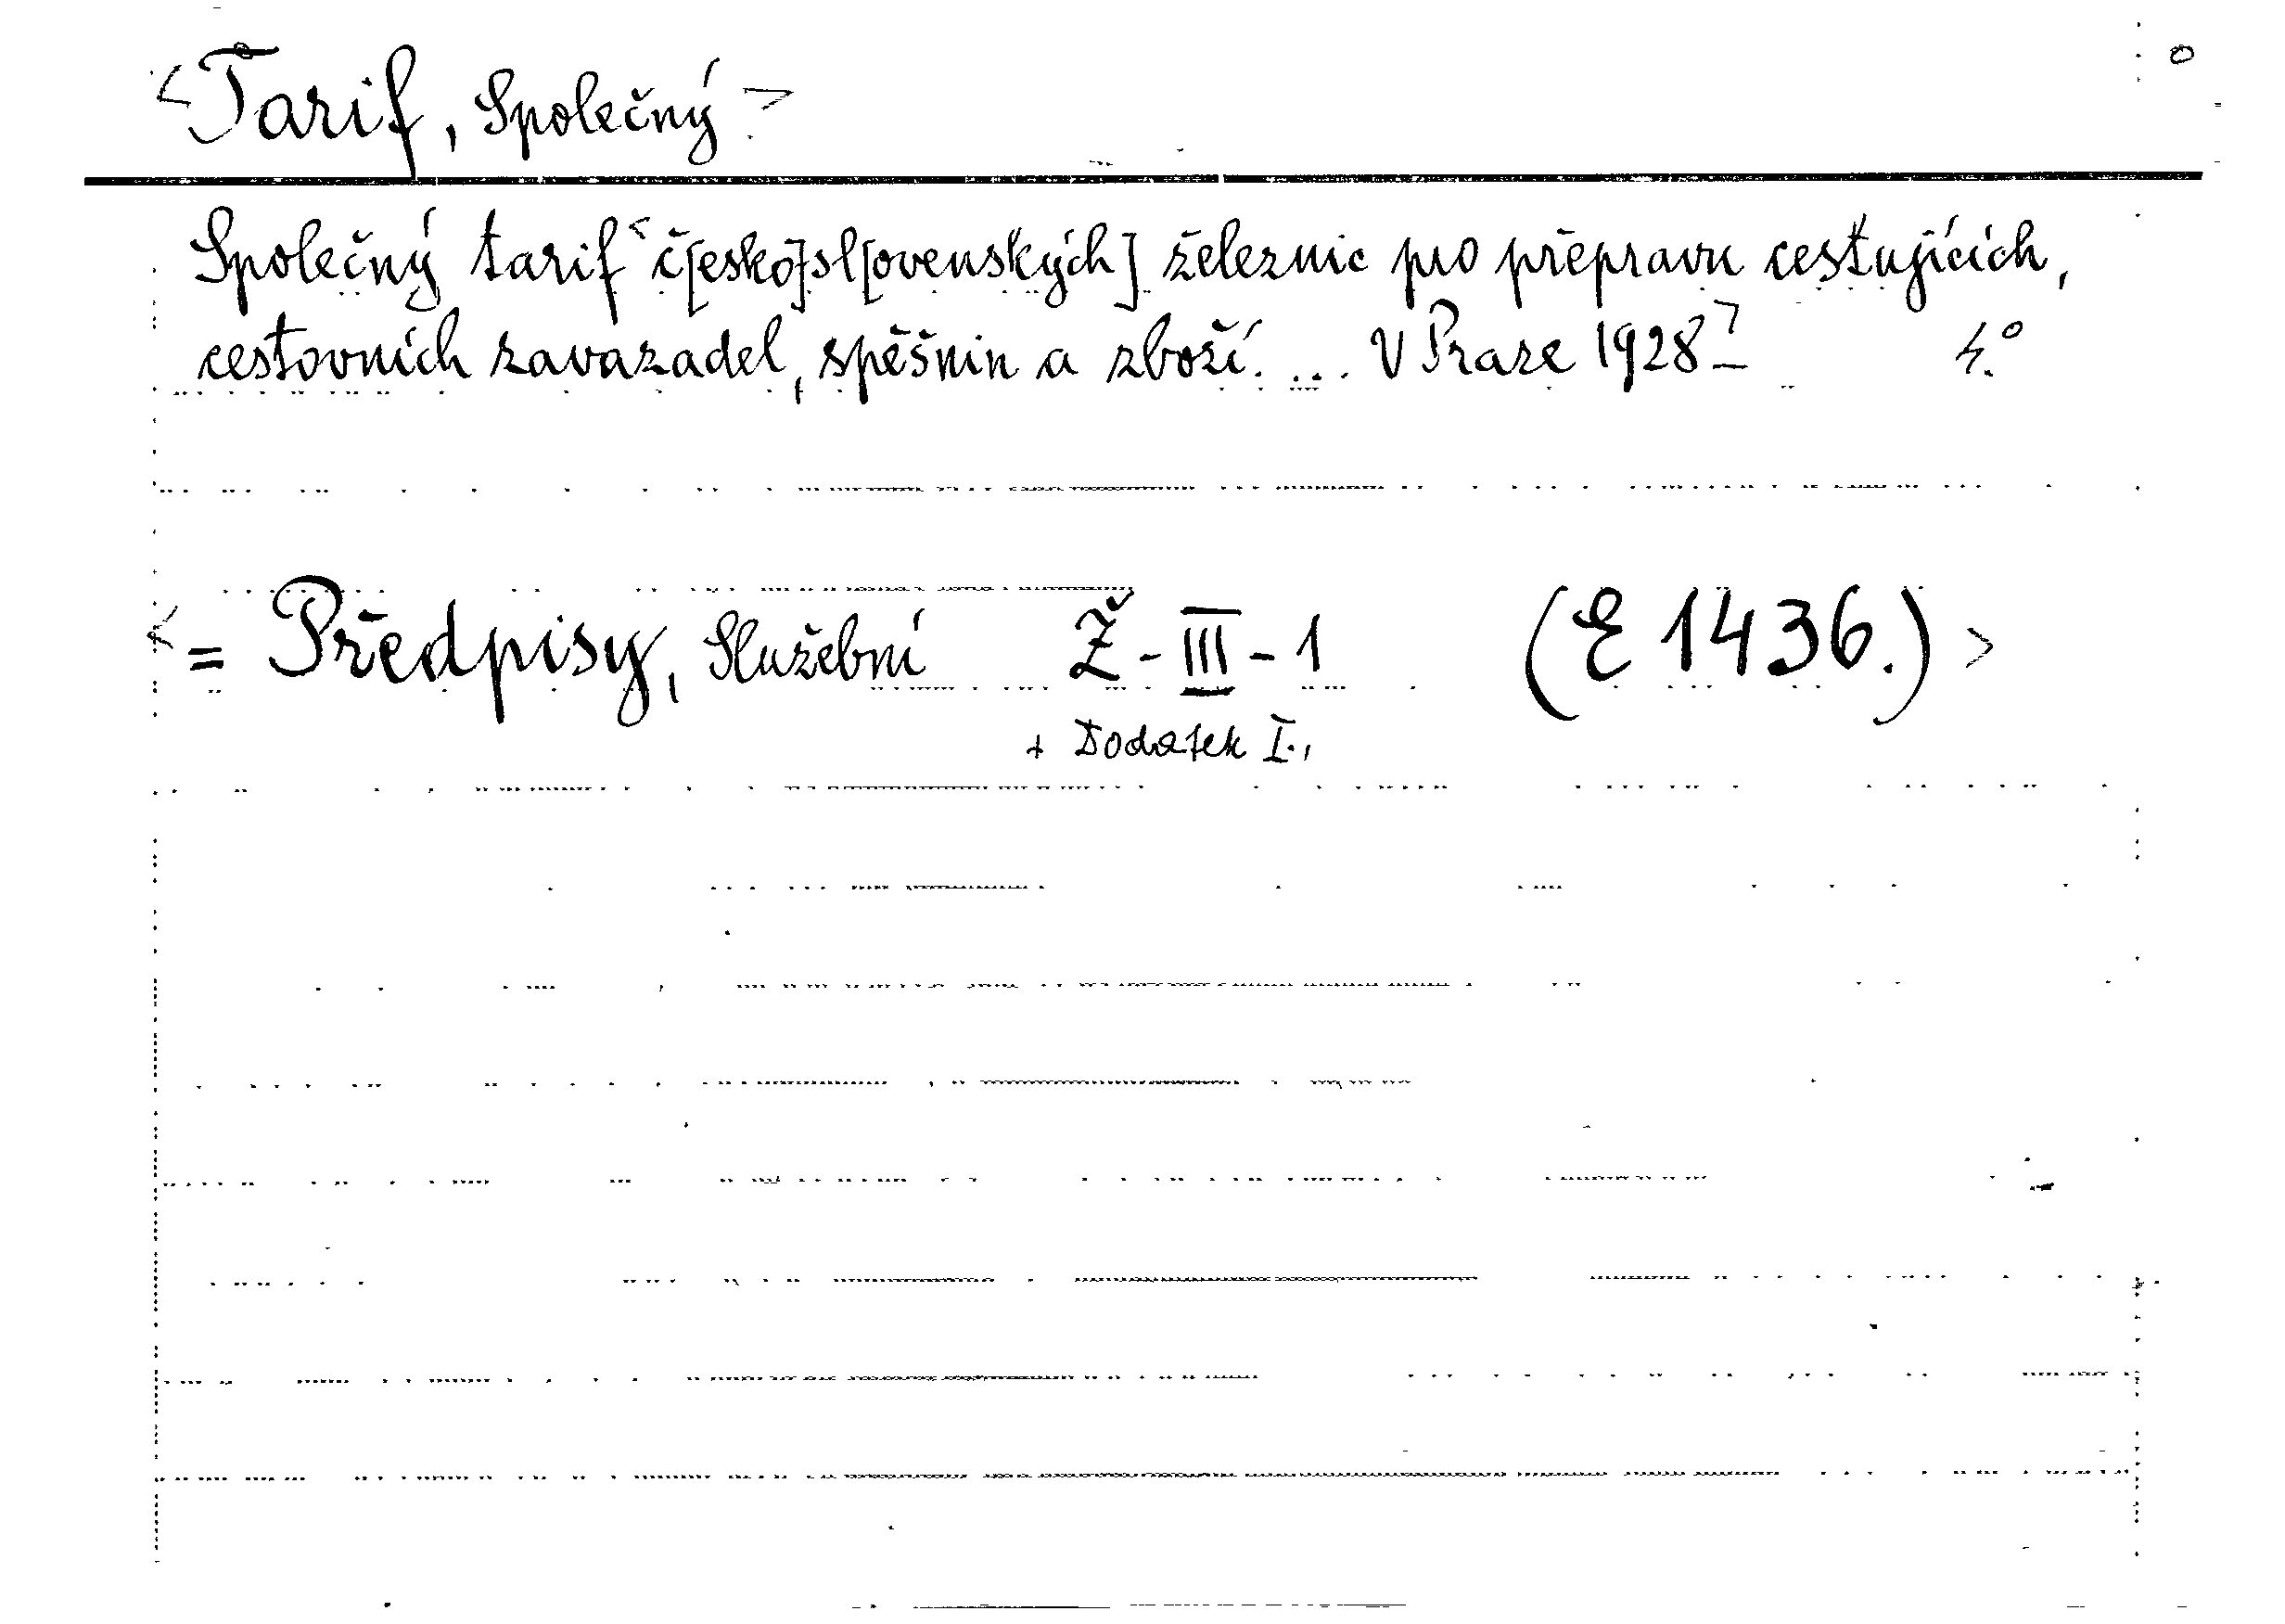 <Tarif, Společný>
Společný tarif <č[esko]sl[ovenských] železnic pro přepravu cestujících,
cestovních zavazadel, spěšnin a zboží. ... V Praze 1928> 4.°
<= Předpisy, Služební Ž-III-1 (E 1436.)>
+ Dodatek I.,